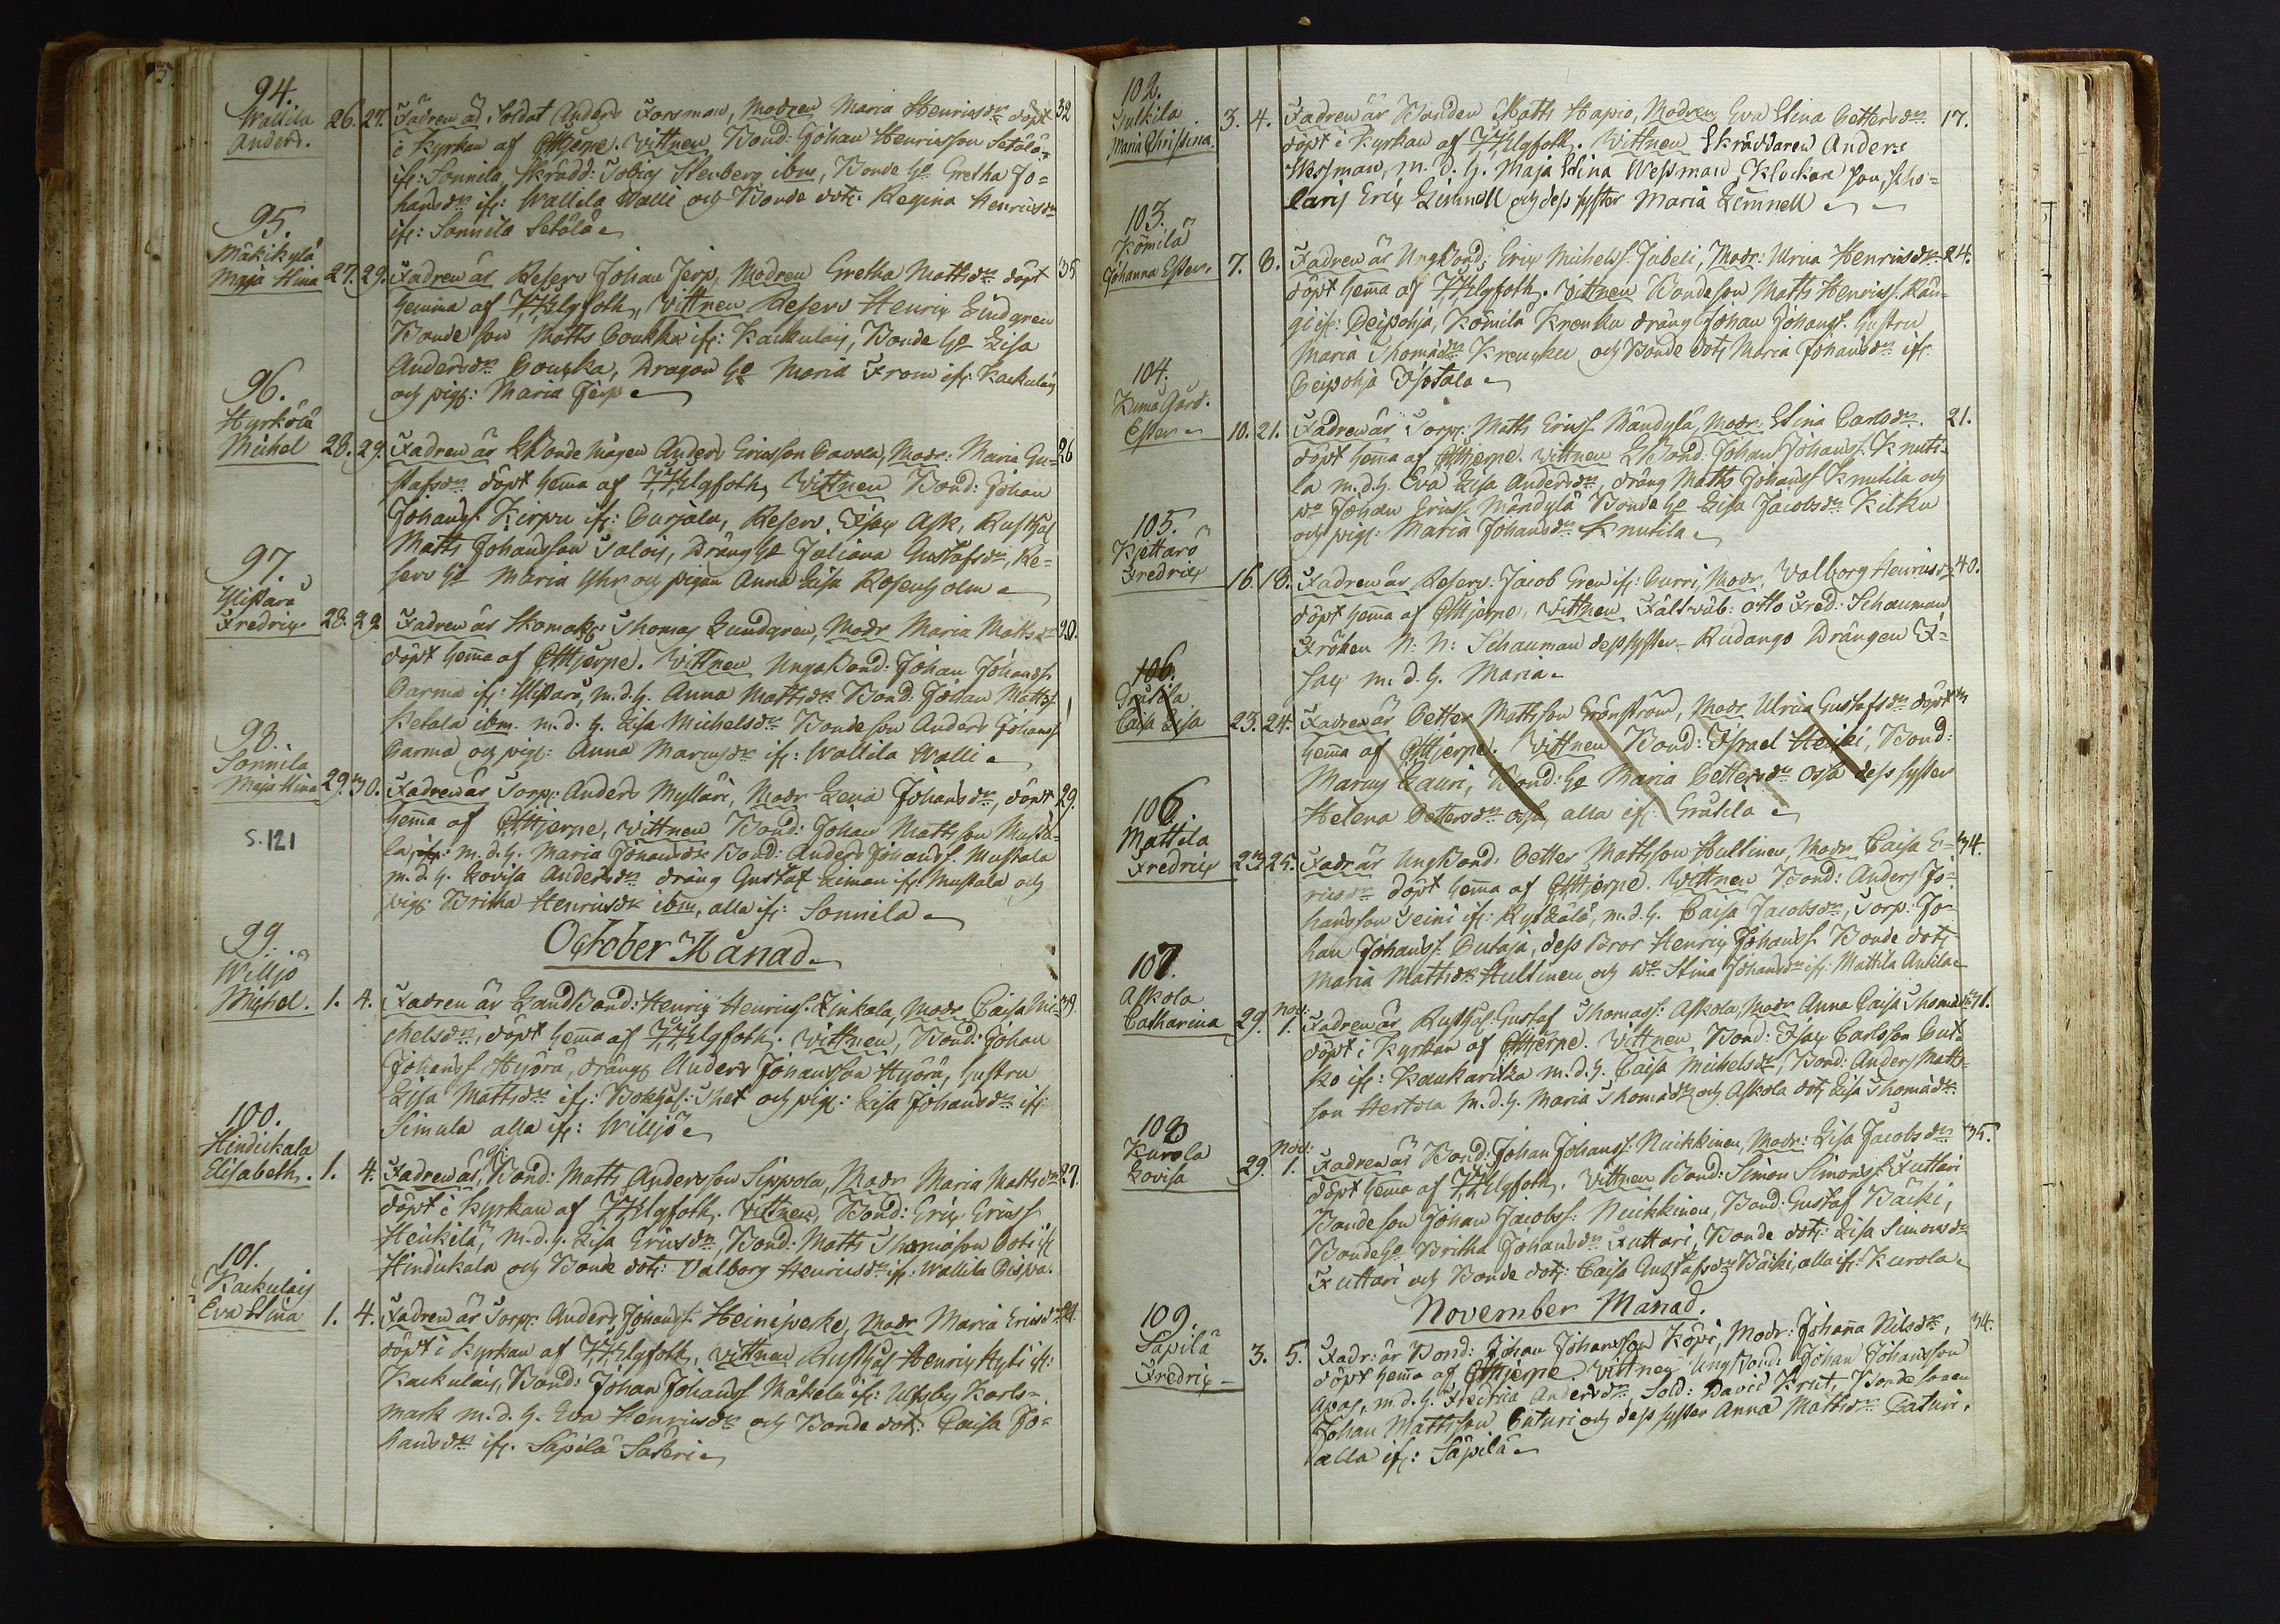 94.
Wallila
Anders.
26. 27. Fadren är Soldat Anders Forsman, Modren Maria Henricsdr döpt 32
i Kyrkan af Hjerpe. Vittnen Bond: Johan Henricsson Setälä
ifr: Sonnila, Skrädd: Tobias Stenberg ibm, Bonde h: Gretha Jo=
hansdr ifr: Wallila Walli och Bonde dotr Regina Henricsdr
ifr: Sonnila Setälä
95.
Mäkikylä
Maja Stina
27. 29. Fadren är Reserv Johan Jerp, Modren Gretha Mattsdr döpt 35
hemma af Elgfoth, Vittnen Reserv Henric Lindgren
Bonde son Matts ifr: Kackulais, Bonde h: Lisa
Andersdr Dragon h: Maria From ifr: Kackulais
och pig: Maria Jerp
96.
Hyrkölä
Michel
28. 29. Fadren är Bonde mågen Anders Ericsson Cavola, Modr: Maria Gu= 26
stafsdr döpt hema af Elgfoth, Vittnen Bond: Johan
Johanss. Kirpu ifr: Curjala, Reserv Isac Ask, Rusthål
Matts Johansson Salois, Dräng h: Juliana Gustafsdr, Re=
serv h: Maria och pigan Anna Lisa Rosenholm
97.
Ylistarå
Fredric
28. 29 Fadren är Skomak: Thomas Lundgren, Modr Maria Mattsdr 30.
döpt hema af Hjerpe. Vittnen Unga Bond: Johan Johanss.
Carma ifr: Ylistarå, m.d.h. Anna Mattsdr Bond: Johan Mattss.
Ketala ibm. m.d.h. Lisa Michelsdr Bonde son Anders Johanss.
Carma och pig: Anna Marcusdr ifr: Wallila Walli
98.
Sonnila
Maja Stina
29. 30. Fadren är Torp: Anders Mylläri, Modr Lena Johansdr, döpt 29.
hema af Hjerpe, Vittnen Bond: Johan Mattsson Musta=
la, m.d.h. Maria Johansdr Bond: Anders Johanss. Mustala
m.d.h. Lovisa Andersdr dräng Gustaf Leman ifr: Mustala och
pig: Britha Henricsdr ibm, alla ifr: Sonnila
S. 121
October Månad.
99.
Willjo
Michel.
1. 4. Fadren är LandBond: Henric Henricss. Finkala, Modr. Caisa Mi= 39.
chelsdr, döpt hema af Elgfoth. Vittnen, Bond: Johan
Johanss. Hyörä, dräng Anders Johansson Hyörä, hustru
Lisa Mattsdr ifr: Bokhål: och pig: Lisa Johansdr ifr:
Simula alla ifr: Willjo
100.
Hindickala
Elisabeth.
1. 4. Fadren är, Bond: Matts Andersson Sippola, Modr Maria Mattsdr 27.
döpt i Kyrkan af Elgfoth. Vittnen, Bond: Eric Ericss.
Heickilä, m.d.h. Lisa Ericsdr, Bond: Matts Thomasson ifr:
Hindickala och Bonde dotr: Valborg Henricsdr ifr: Wallila Piispa.
101.
Kackulais
Eva Stina
1. 4. Fadren är Torp: Anders Johanss. Heiniperke, Modr Maria Ericsdr 24.
döpt i Kyrkan af Elgfoth, Vittnen Rusthål Henric Hyti ifr:
Kackulais, Bond: Johan Johanss. Mäkelä ifr: Ulfsby Karls=
mark m.d.h. Eva Henricsdr och Bonde dotr: Caisa Jo=
hansdr ifr: Säpilä Sakeri
102.
Sulkila
Maria Christina.
3. 4. Fadren är Bonden Matts Hapio, Modren Eva Stina Pettersdr 17.
döpt i Kyrkan af Elgfoth. Vittnen Skräddaren Anders
Wessman, m.d.h. Maja Stina Wessman, Klockare son, scho=
laris Eric Limnell och dess syster Maria Limnell
103.
Kömilä
Johanna Ester,
7. 8. Fadren är UngBond: Eric Michelss. Jubeli, Modr: Ulrica Henricsdr 24.
döpt hema af Elgfoth. Vittnen Bonde son Matts Henricss. Kän=
gi ifr: Peipohja, Kömilä Krouku dräng Johan Johanss. hustru
Maria Thomasdr Krouku och Bonde dotr Maria Johansdr ifr:
Peipohja Isotalo
104.
Kumå Gård.
Ester
10. 21. Fadren är Torp: Matts Ericss. Mändylä, Modr: Stina Carlsdr. 21.
döpt hema af Hjerpe. Vittnen Bond: Johan Johanss. Knuti=
la m.d.h. Eva Lisa Andersdr, dräng Matts Johanss. Knutila och
Johan Ericss. Mändylä Bonde h: Lisa Jacobsdr Kilku
och pig: Maria Johansdr Knutila
105.
Kjettarö
Fredric
16. 18. Fadren är Reserv: Jacob Gren ifr: Curri, Modr. Valborg Henricsdr 40.
döpt hema af Hjerpe, Vittnen Fältväb: Otto Fred: Schauman
Fröken N: N: Schauman dess syster. Rudango Drängen I=
sac m.d.h. Maria
106.
Gräsila
Caisa Lisa
23. 24. Fadren är Petter Mattsson Grönström, Modr Ulrica Gustafsdr döpt
hema af Hjerpe. Vittnen Bond: Israel Heicki, Bond:
Marcus Lauri, Bond: h: Maria Pettersdr Ossa dess syster
Helena Pettersdr Ossa, alla ifr: Gräsila
106.
Mattila
Fredric
23. 25. Fadr: är UngBond: Petter Mattsson Hultinen, Modr Caisa E= 34.
ricsdr döpt hema af Hjerpe. Vittnen Bond: Anders Jo=
hansson Seini ifr: Kyttälä, m.d.h. Caisa Jacobsdr, Torp: Jo=
han Johanss. Cutaja, dess Bror Henric Johanss. Bonde dotr
Maria Mattsdr Hultinen och Stina Johansdr ifr: Mattila Antila
107.
Askola
Catharina
29. Nov: 1. Fadren är Rusthål: Gustaf Thomass: Askola, Modr Anna Caisa Thomasdr 31.
döpt i Kyrkan af Hjerpe. Vittnen Bond: Isac Carlsson
ifr: Kaukaritza m.d.h. Caisa Michelsdr, Bond: Anders Matts=
son Hertola m.d.h. Maria Thomasdr och Askola dotr Lisa Thomasdr.
108
Kurola
Lovisa
29. Nov: 1. Fadren är Bond: Johan Johanss: Nuikkinen, Modr: Lisa Jacobsdr 35.
döpt hema af Elgfoth. Vittnen Bond: Simon Simonss. Futtari
Bonde son Johan Jacobss: Nuikkinen, Bond: Gustaf Bäcki,
Bonde h: Britha Johansdr Futtari, Bonde dotr: Lisa Simonsdr
Futtari och Bonde dotr: Caisa Gustafsdr Bäcki, alla ifr: Kurola
November Månad.
109.
Säpilä
Fredric
3. 5. Fadr: är Bond: Johan Johansson Köpi, Modr: Johana Nilsdr, 34.
döpt hema af Hjerpe. Vittnen UngBond: Johan Johansson
Apas, m.d.h. Fredrica Andersdr Sold: David Krut, Bonde sonen
Johan Mattsson Caturi och dess syster Anna Mattsdr Caturi,
alla ifr: Säpilä